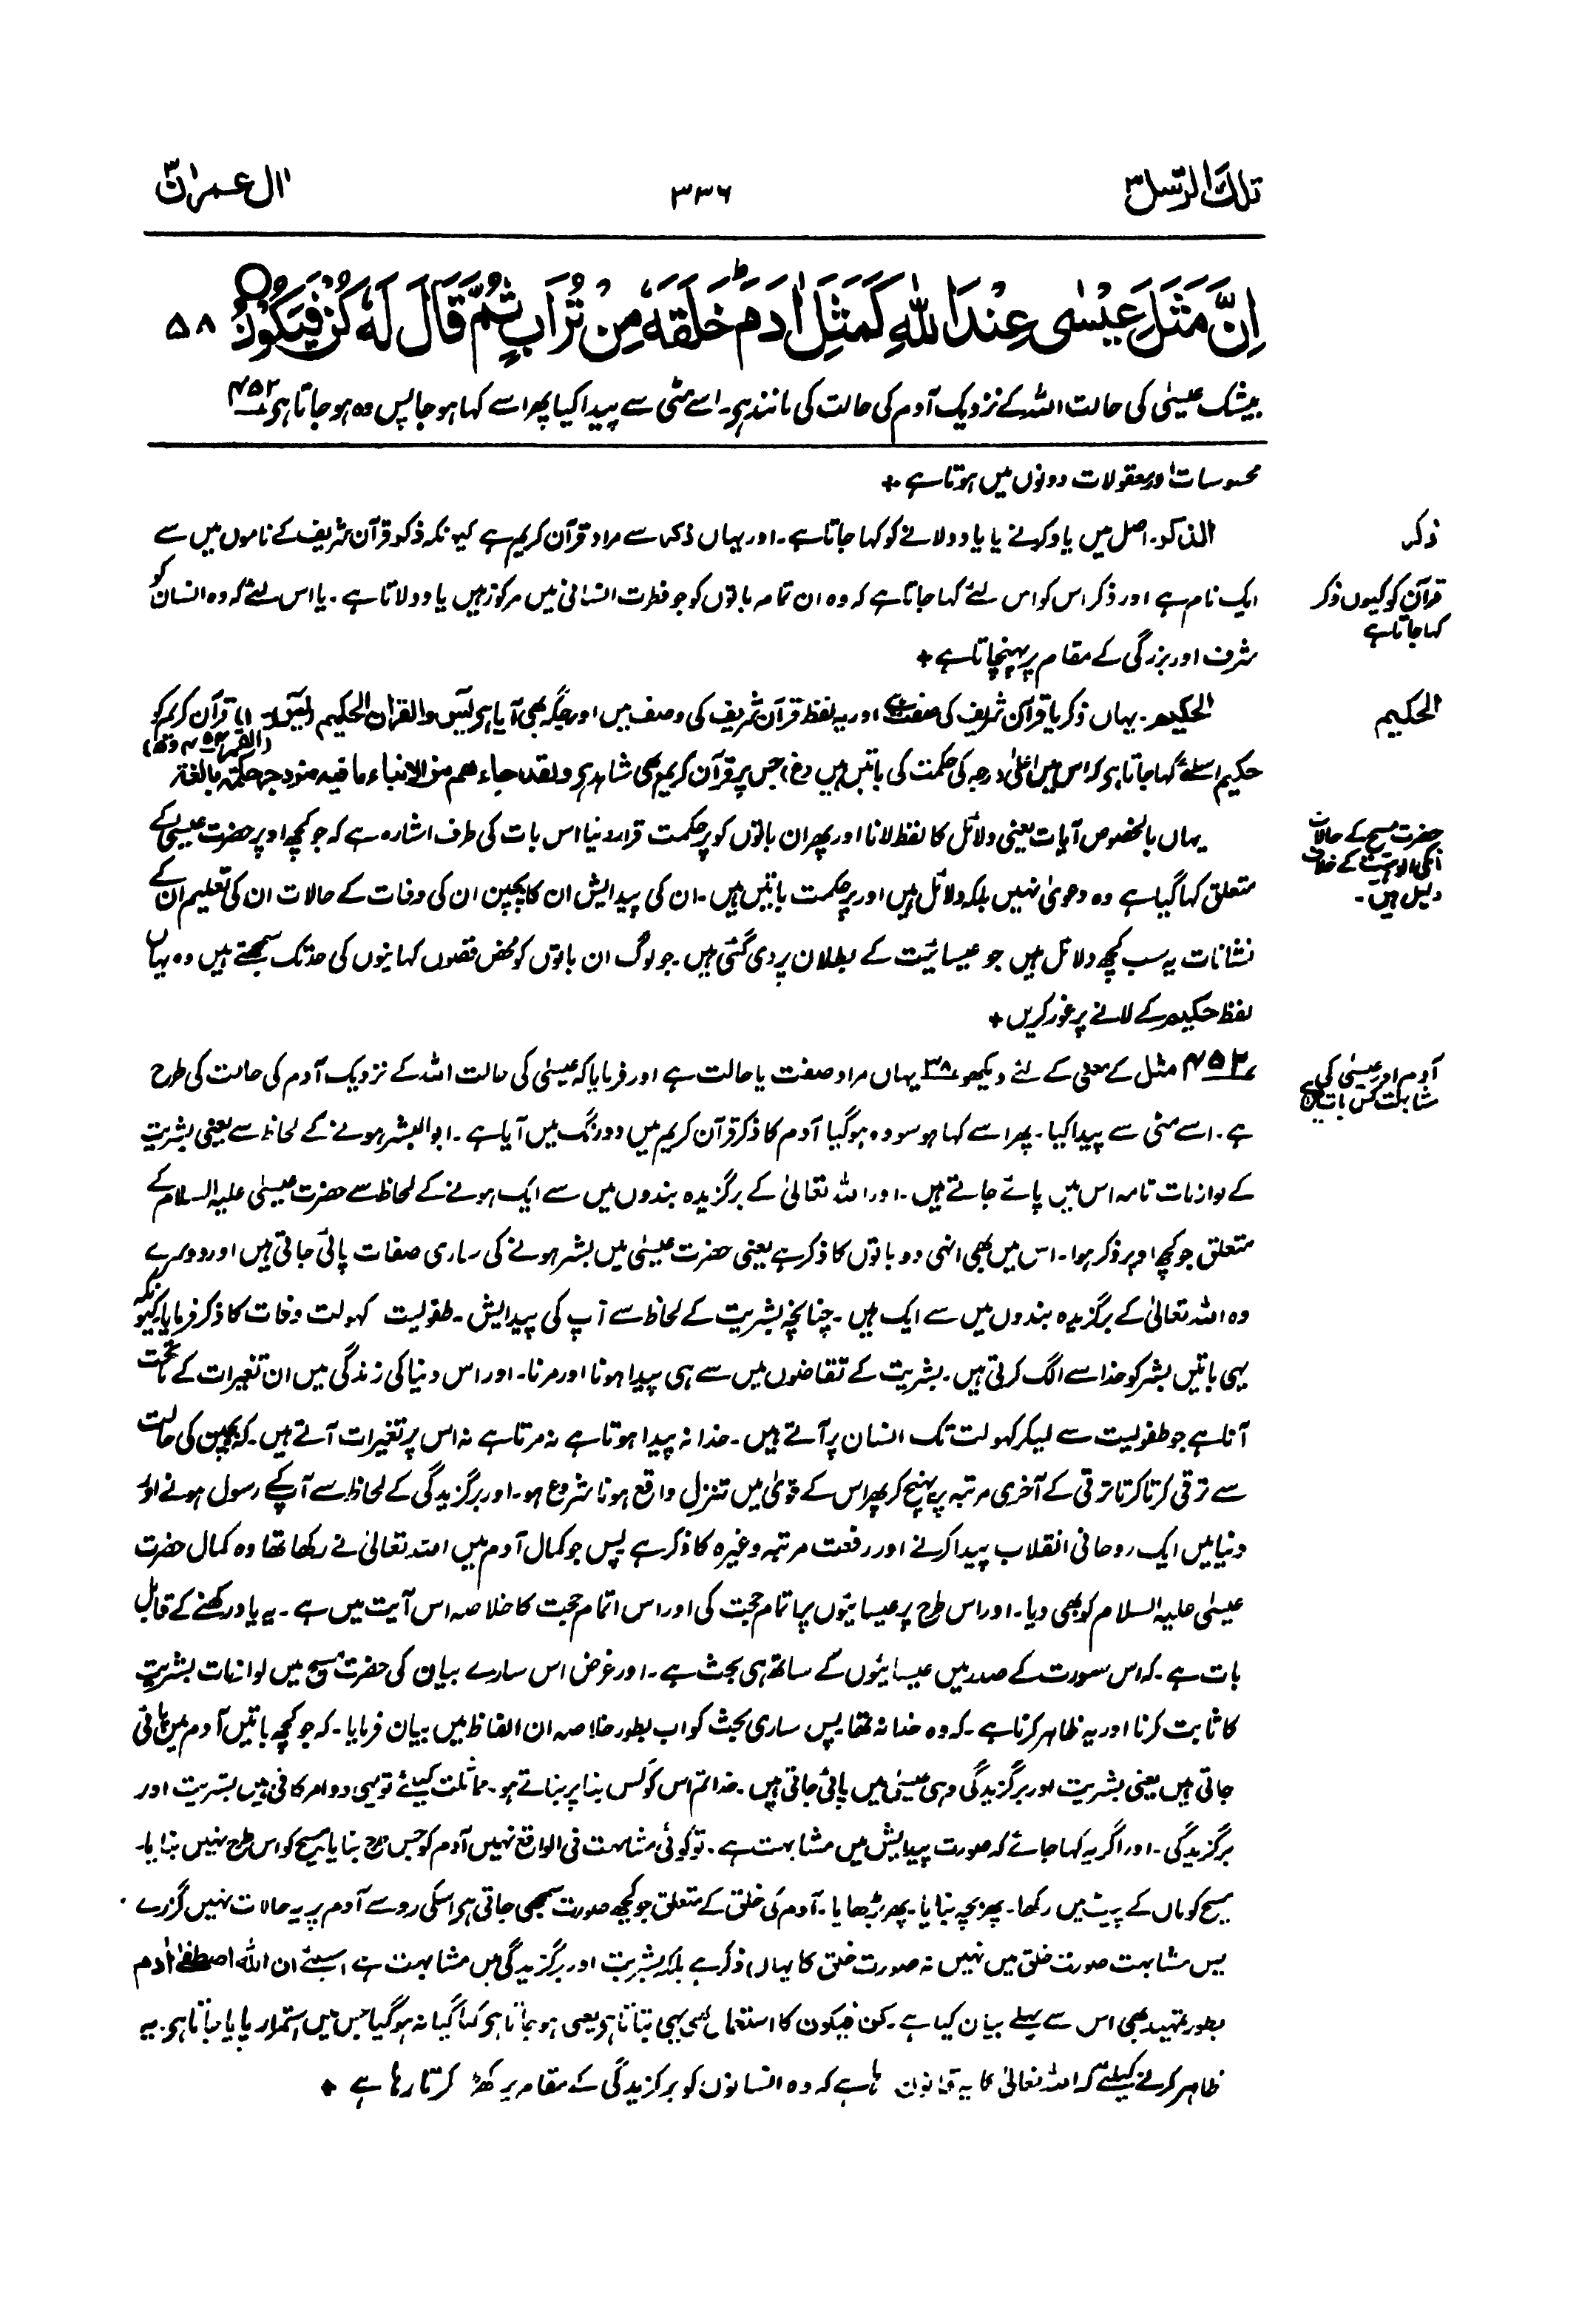 تلك الرسل ۳
۳۳۶
اٰل عمرٰن ۳
اِنَّ مَثَلَ عِيْسٰى عِنْدَ اللّٰهِ كَمَثَلِ اٰدَمَ ؕ خَلَقَهٗ مِنْ تُرَابٍ ثُمَّ قَالَ لَهٗ كُنْ فَيَكُوْنُ ○ ۵۸
بیشک عیسیٰ کی حالت اللہ کے نزدیک آدم کی حالت کی مانند ہی۔ اسے مٹی سے پیدا کیا پھر اسے کہا ہو جا پس وہ ہو جاتا ہی ۴۵۲
محسوسات اور معقولات دونوں میں ہوتا ہے +
ذکر
الذکر۔ اصل میں یاد کرنے یا یاد دلانے کو کہا جاتا ہے۔ اور یہاں ذکر سے مراد قرآن کریم ہے کیونکہ ذکر قرآن شریف کے ناموں میں سے
قرآن کو کیوں ذکر
کہا جاتا ہے
ایک نام ہے اور ذکر اس کو اس لئے کہا جاتا ہے کہ وہ ان تمام باتوں کو جو فطرت انسانی میں مرکوز ہیں یاد دلاتا ہے۔ یا اس لئے کہ وہ انسان کو
شرف اور بزرگی کے مقام پر پہنچاتا ہے +
الحکیم
الحکیم۔ یہاں ذکر یا قرآن شریف کی صفت ہے اور یہ لفظ قرآن شریف کی وصف میں اور جگہ بھی آیا ہی یٰس والقراٰن الحکیم (یٰس۔ ۱) قرآن کریم کو
حکیم اسلئے کہا جاتا ہی کہ اس میں اعلیٰ درجہ کی حکمت کی باتیں ہیں (غ) جس پر قرآن کریم بھی شاہد ہی ولقد جاءھم من الانباء ما فیہ مزدجر حکمۃ بالغۃ (القمر ۵۴۔ ۴ و ۵)
حضرت مسیح کے حالات
انکی الوہیت کے خلاف
دلیل ہیں۔
یہاں بالخصوص آیات یعنی دلائل کا لفظ لانا اور پھر ان باتوں کو پر حکمت قرار دینا اس بات کی طرف اشارہ ہے کہ جو کچھ اوپر حضرت عیسیٰ کے
متعلق کہا گیا ہے وہ دعویٰ نہیں بلکہ دلائل ہیں اور پر حکمت باتیں ہیں۔ ان کی پیدایش ان کا بچپن ان کی وفات کے حالات ان کی تعلیم ان کے
نشانات یہ سب کچھ دلائل ہیں جو عیسائیت کے بطلان پر دی گئی ہیں۔ جو لوگ ان باتوں کو محض قصوں کہانیوں کی حد تک سمجھتے ہیں وہ یہاں
لفظ حکیم کے لانے پر غور کریں +
آدم اور عیسیٰ کی
مشابہت کس بات میں ہے
۴۵۲ مثل کے معنی کے لئے دیکھو ۳۸ یہاں مراد صفت یا حالت ہے اور فرمایا کہ عیسیٰ کی حالت اللہ کے نزدیک آدم کی حالت کی طرح
ہے۔ اسے مٹی سے پیدا کیا۔ پھر اسے کہا ہو سو وہ ہو گیا آدم کا ذکر قرآن کریم میں دو رنگ میں آیا ہے۔ ابو البشر ہونے کے لحاظ سے یعنی بشریت
کے لوازمات تامہ اس میں پائے جاتے ہیں۔ اور اللہ تعالیٰ کے برگزیدہ بندوں میں سے ایک ہونے کے لحاظ سے حضرت عیسیٰ علیہ السلام کے
متعلق جو کچھ اوپر ذکر ہوا۔ اس میں بھی انہی دو باتوں کا ذکر ہے یعنی حضرت عیسیٰ میں بشر ہونے کی ساری صفات پائی جاتی ہیں اور دوسرے
وہ اللہ تعالیٰ کے برگزیدہ بندوں میں سے ایک ہیں۔ چنانچہ بشریت کے لحاظ سے آپ کی پیدایش۔ طفولیت کہولت وفات کا ذکر فرمایا کیونکہ
یہی باتیں بشر کو خدا سے الگ کرتی ہیں۔ بشریت کے تقاضوں میں سے ہی پیدا ہونا اور مرنا۔ اور اس دنیا کی زندگی میں ان تغیرات کے تحت
آنا ہے جو طفولیت سے لیکر کہولت تک انسان پر آتے ہیں۔ خدا نہ پیدا ہوتا ہے نہ مرتا ہے نہ اس پر تغیرات آتے ہیں۔ کہ بچپن کی حالت
سے ترقی کرتا کرتا ترقی کے آخری مرتبہ پر پہنچ کر پھر اس کے قویٰ میں تنزل واقع ہونا شروع ہو۔ اور برگزیدگی کے لحاظ سے آپ کے رسول ہونے اور
دنیا میں ایک روحانی انقلاب پیدا کرنے اور رفعت مرتبہ وغیرہ کا ذکر ہے پس جو کمال آدم میں اللہ تعالیٰ نے رکھا تھا وہ کمال حضرت
عیسیٰ علیہ السلام کو بھی دیا۔ اور اس طرح پر عیسائیوں پر اتمام حجت کی اور اس اتمام حجت کا خلاصہ اس آیت میں ہے۔ یہ یاد رکھنے کے قابل
بات ہے۔ کہ اس سورت کے صدر میں عیسائیوں کے ساتھ ہی بحث ہے۔ اور غرض اس سارے بیان کی حضرت مسیح میں لوازمات بشریت
کا ثابت کرنا اور یہ ظاہر کرنا ہے۔ کہ وہ خدا نہ تھا پس ساری بحث کو اب بطور خلاصہ ان الفاظ میں بیان فرمایا۔ کہ جو کچھ باتیں آدم میں پائی
جاتی ہیں یعنی بشریت اور برگزیدگی وہی عیسیٰ میں پائی جاتی ہیں۔ خدا تم اس کو کس بنا پر بناتے ہو۔ مماثلت کیلئے تو یہی دو امر کافی ہیں بشریت اور
برگزیدگی۔ اور اگر یہ کہا جائے کہ صورت پیدایش میں مشابہت ہے۔ تو کوئی مشابہت فی الواقع نہیں آدم کو جس طرح بنایا مسیح کو اس طرح نہیں بنایا۔
مسیح کو ماں کے پیٹ میں رکھا۔ پھر بچہ بنایا۔ پھر بڑھایا۔ آدم کی خلق کے متعلق جو کچھ صورت سمجھی جاتی ہی اسکی رو سے آدم پر یہ حالات نہیں گزرے۔
پس مشابہت صورت خلق میں نہیں نہ صورت خلق کا یہاں ذکر ہے بلکہ بشریت اور برگزیدگی میں مشابہت ہے اسلئے ان اللہ اصطفیٰ اٰدم
بطور تمہید بھی اس سے پہلے بیان کیا ہے۔ کن فیکون کا استعمال بھی یہی بتاتا ہی یعنی ہو جاتا ہی کہا گیا نہ ہو گیا جس میں استمرار پایا جاتا ہی۔ یہ
ظاہر کرنے کیلئے کہ اللہ تعالیٰ کا یہ قانون ہے کہ وہ انسانوں کو برگزیدگی کے مقام پر کھڑا کرتا رہا ہے +